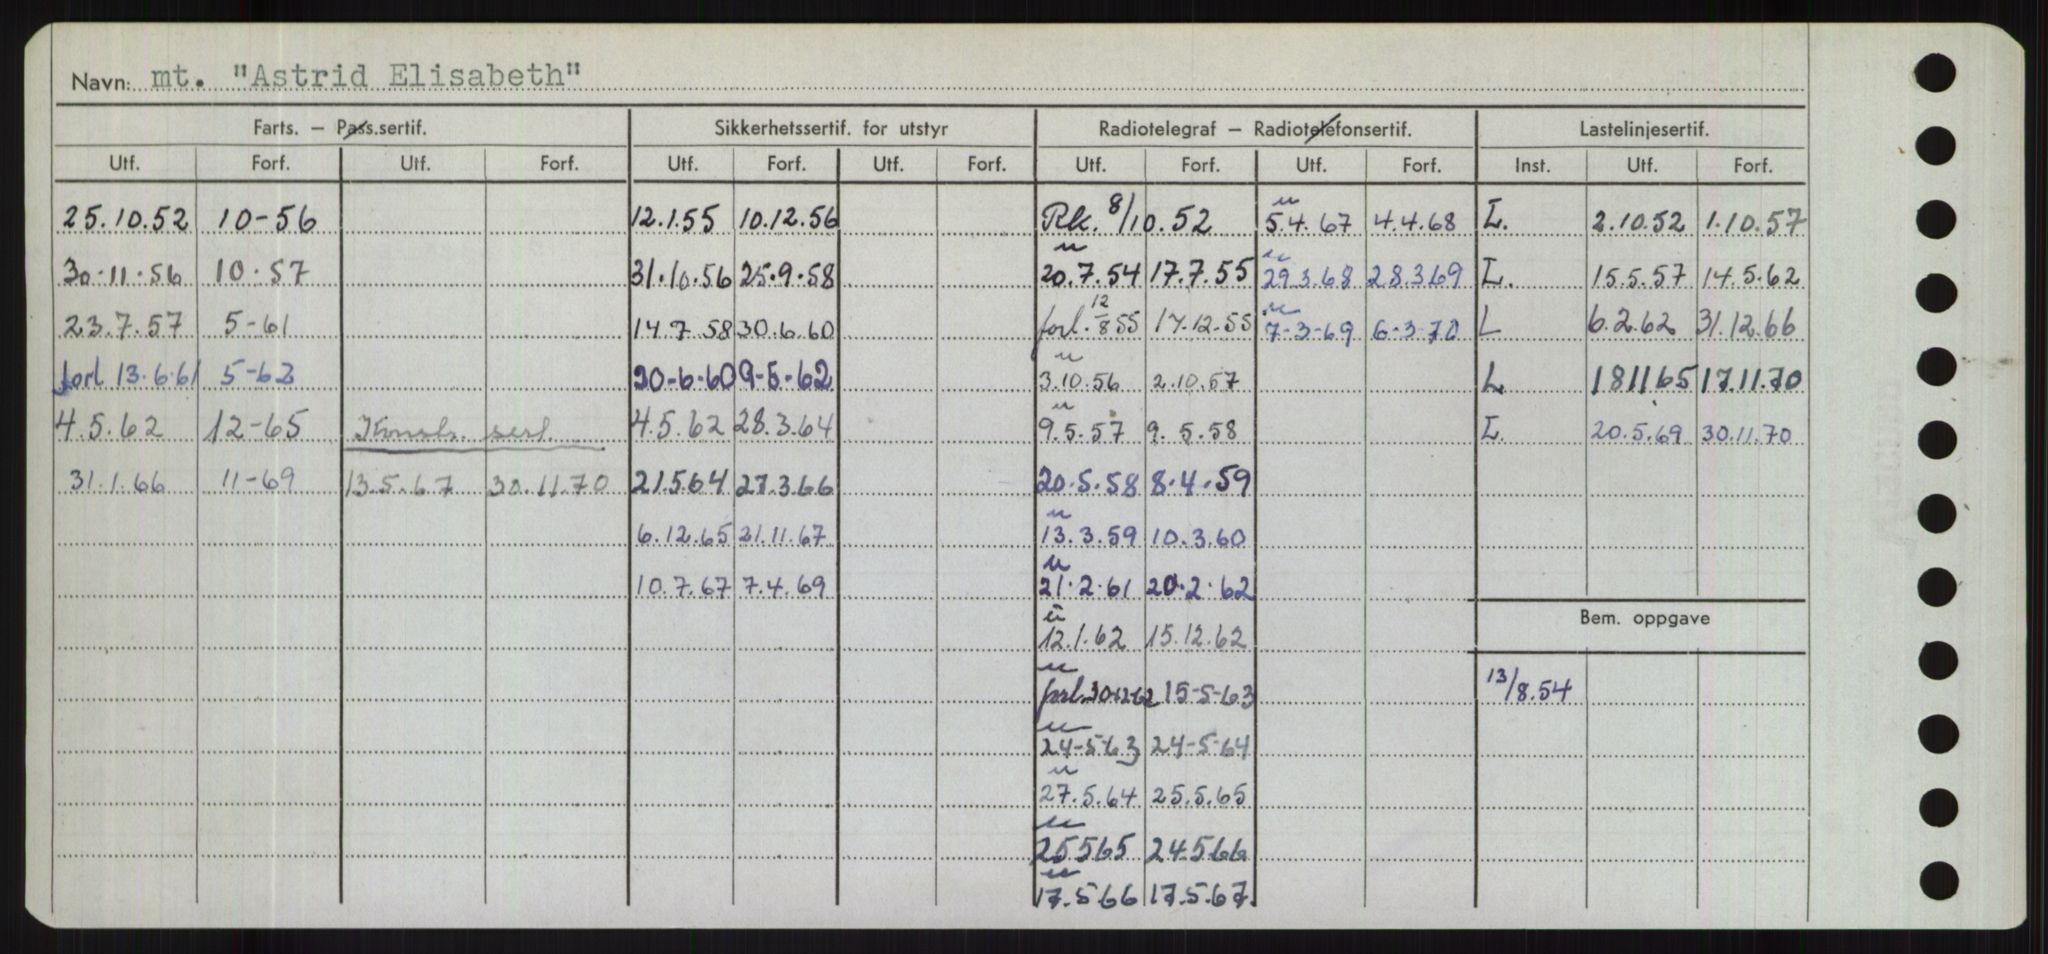 Navn: mt. "Astrid Elisabeth"
Farts. — Pass.sertif. Sikkerhetssertif. for utstyr Radiotelegraf — Radiotelefonsertif. Lastelinjesertif.
Utf. Forf. Utf. Forf. Utf. Forf. Utf. Forf. Utf. Forf. Utf. Forf. Inst. Utf. Forf.
25.10.52 10-56 12.1.55 10.12.56 Rk. 8/10.52 u 5.4.67 4.4.68 L. 2.10.52 1.10.57
30.11.56 10.57 31.10.56 25.9.58 u 20.7.54 17.7.55 u 29.3.68 28.3.69 L. 15.5.57 14.5.62
23.7.57 5-61 14.7.58 30.6.60 forl. 12/8 55 17.12.55 u 7-3-69 6-3-70 L 6.2.62 31.12.66
forl 13.6.61 5-62 30-6-60 9-5-62 u 3.10.56 2.10.57 L. 181165 17.11.70
4.5.62 12-65 Konstr. sert. 4.5.62 28.3.64 u 9.5.57 9.5.58 L. 20.5.69 30.11.70
31.1.66 11-69 13.5.67 30.11.70 21564 27.3.66 20.5.58 8.4.59
6.12.65 21.11.67 u 13.3.59 10.3.60
10.7.67 7.4.69 u 21.2.61 20.2.62
Bem. oppgave
u 12.1.62 15.12.62
u forl. 30-12-62 15-5-63 13/8.54
u 24-5-63 24-5-64
u 27.5.64 25.5.65
u 25565 24.5.66
u 17.5.66 17.5.67.